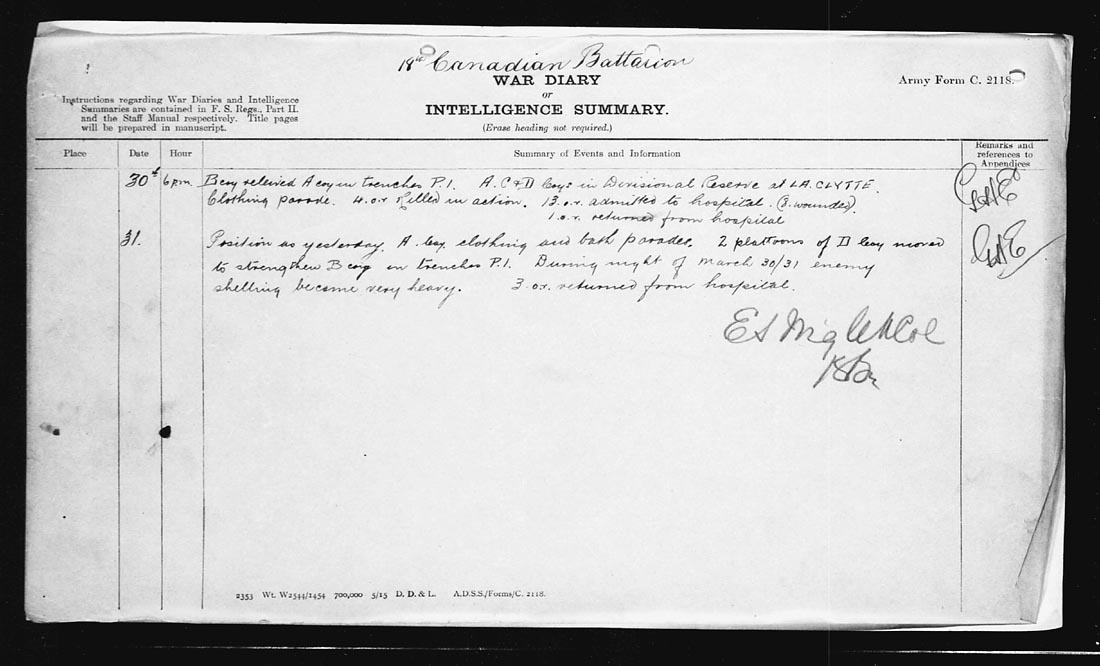 18th Canadian Battalion
WAR DIARY
or
INTELLIGENCE SUMMARY.
(Erase heading not required.)
Army Form C. 2118.
Instructions regarding War Diaries and Intelligence
Summaries are contained in F. S. Regs., Part II.
and the Staff Manual respectively. Title pages
will be prepared in manuscript.
Place Date Hour Summary of Events and Information Remarks and references to Appendices
30th 6 pm. B coy releived A coy in trenches P.1. A. C & D Coys in Divisional Reserve at LA CLYTTE.
Clothing parade. 4. o.r. killed in action. 13 o.r. admitted to hospital. (3. wounded).
1. o.r. returned from hospital
31. Position as yesterday. A. Coy. clothing and bath parades. 2 plattoons of D Coy moved
to strengthen B coy in trenches P.1. During night of March 30/31 enemy
shelling became very heavy. 3. o.r. returned from hospital.
18 Bn
2353 Wt. W2544/1454 700,000 5/15 D. D. & L. A.D.S.S./Forms/C. 2118.